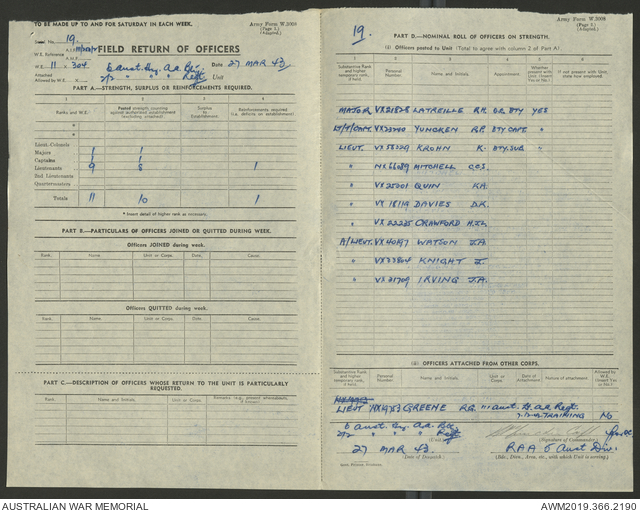 TO BE MADE UP TO AND FOR SATURDAY IN EACH WEEK.
Army Form W.3008
(Page 1.)
(Adapted.)
Serial No. 19
FIELD RETURN OF OFFICERS
W.E. Reference
W.E. 11 x 304.
6 Aust. Hvy. A.A. Bty.
Date 27 MAR 43
Attached
Allowed by W.E. x
2/3 " " " Regt
Unit
PART A.—STRENGTH, SURPLUS OR REINFORCEMENTS REQUIRED.
1 2 3 4
Ranks and W.E. Posted strength, counting against authorized establishment (excluding attached) Surplus to Establishment Reinforcements required (i.e. deficits on establishment)
*
*
Lieut.-Colonels
Majors 1 1
Captains 1 1
Lieutenants 9 8 1
2nd Lieutenants
Quartermasters
Totals 11 10 1
* Insert detail of higher rank as necessary.
PART B.—PARTICULARS OF OFFICERS JOINED OR QUITTED DURING WEEK.
Officers JOINED during week.
Rank. Name. Unit or Corps. Date. Cause.
Officers QUITTED during week.
Rank. Name. Unit or Corps. Date. Cause.
PART C.—DESCRIPTION OF OFFICERS WHOSE RETURN TO THE UNIT IS PARTICULARLY REQUESTED.
Rank. Name and Initials. Unit or Corps. Remarks
19.
Army Form W.3008
(Page 2.)
(Adapted).
PART D.—NOMINAL ROLL OF OFFICERS ON STRENGTH.
(i) Officers posted to Unit (Total to agree with column 2 of Part A)
1 2 3 4 5 6
Substantive Rank and higher temporary rank, if held. Personal Number. Name, and Initials. Appointment Whether present with Unit. (Yes or No.) If not present with Unit, state how employed
MAJOR VX21828 LATREILLE R.P. O.C. BTY YES
LT/T/CAPT. VX23740 YUNCKEN R.P. BTY CAPT. "
LIEUT. VX58329 KROHN K. BTY. SUB "
" NX66089 MITCHELL C.C.S.
" VX25201 QUIN K.A.
" VX18119 DAVIES D.K.
" VX22235 CRAWFORD H.J.L.
A/LIEUT. VX40197 WATSON J.A.
" VX33804 KNIGHT J.
" VX21709 IRVING J.A.
(ii) OFFICERS ATTACHED FROM OTHER CORPS.
Substantive Rank and higher temporary rank, if held. Personal Number. Name and Initials. Unit or Corps. Date of Attachment. Nature of attachment. Allowed by W.E. (Insert Yes or No.)
LIEUT NX19753 GREENE R.G. 111 Aust. Lt. A.A. Regt. TRAINING NO
6 Aust. Hvy. A.A. Bty.
2/3 " " " Regt
(Unit)
(Signature of Commander.)
27 MAR 43.
(Date of Despatch).
RAA 5 Aust Div.
(Bde., Divn., Area, etc., with which Unit is serving.)
AUSTRALIAN WAR MEMORIAL
AWM2019.366.2190